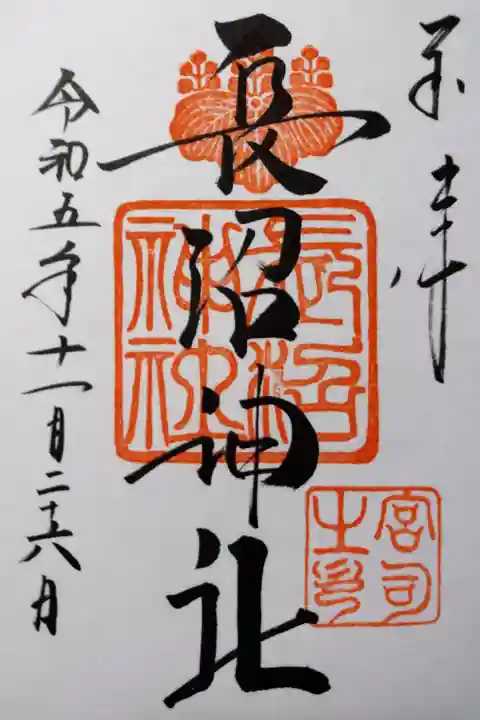 奉拝
長沼神社
令和五年十一月二十六日
長沼
神社
宮司
之印